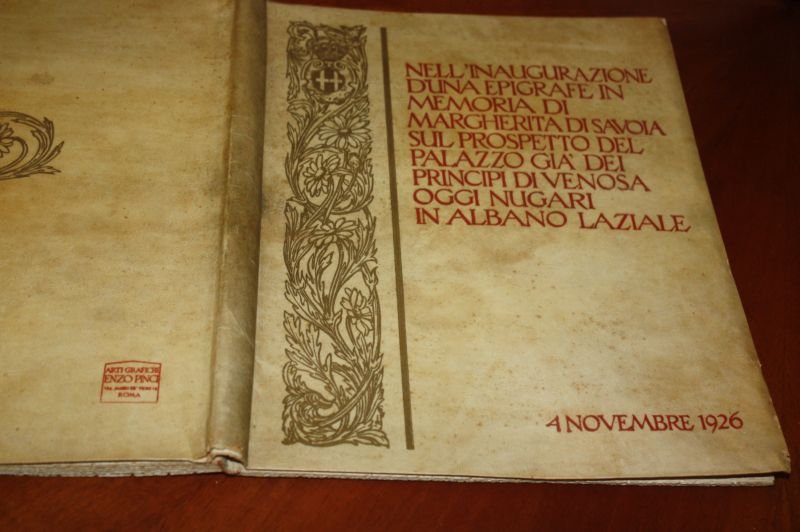 NELL'INAUGURAZIONE
D'UNA EPIGRAFE IN
MEMORIA DI
MARGHERITA DI SAVOIA
SUL PROSPETTO DEL
PALAZZO GIA' DEI
PRINCIPI DI VENOSA
OGGI NUGARI
IN ALBANO LAZIALE
4 NOVEMBRE 1926
ARTI GRAFICHE
ENZO PINCI
ROMA